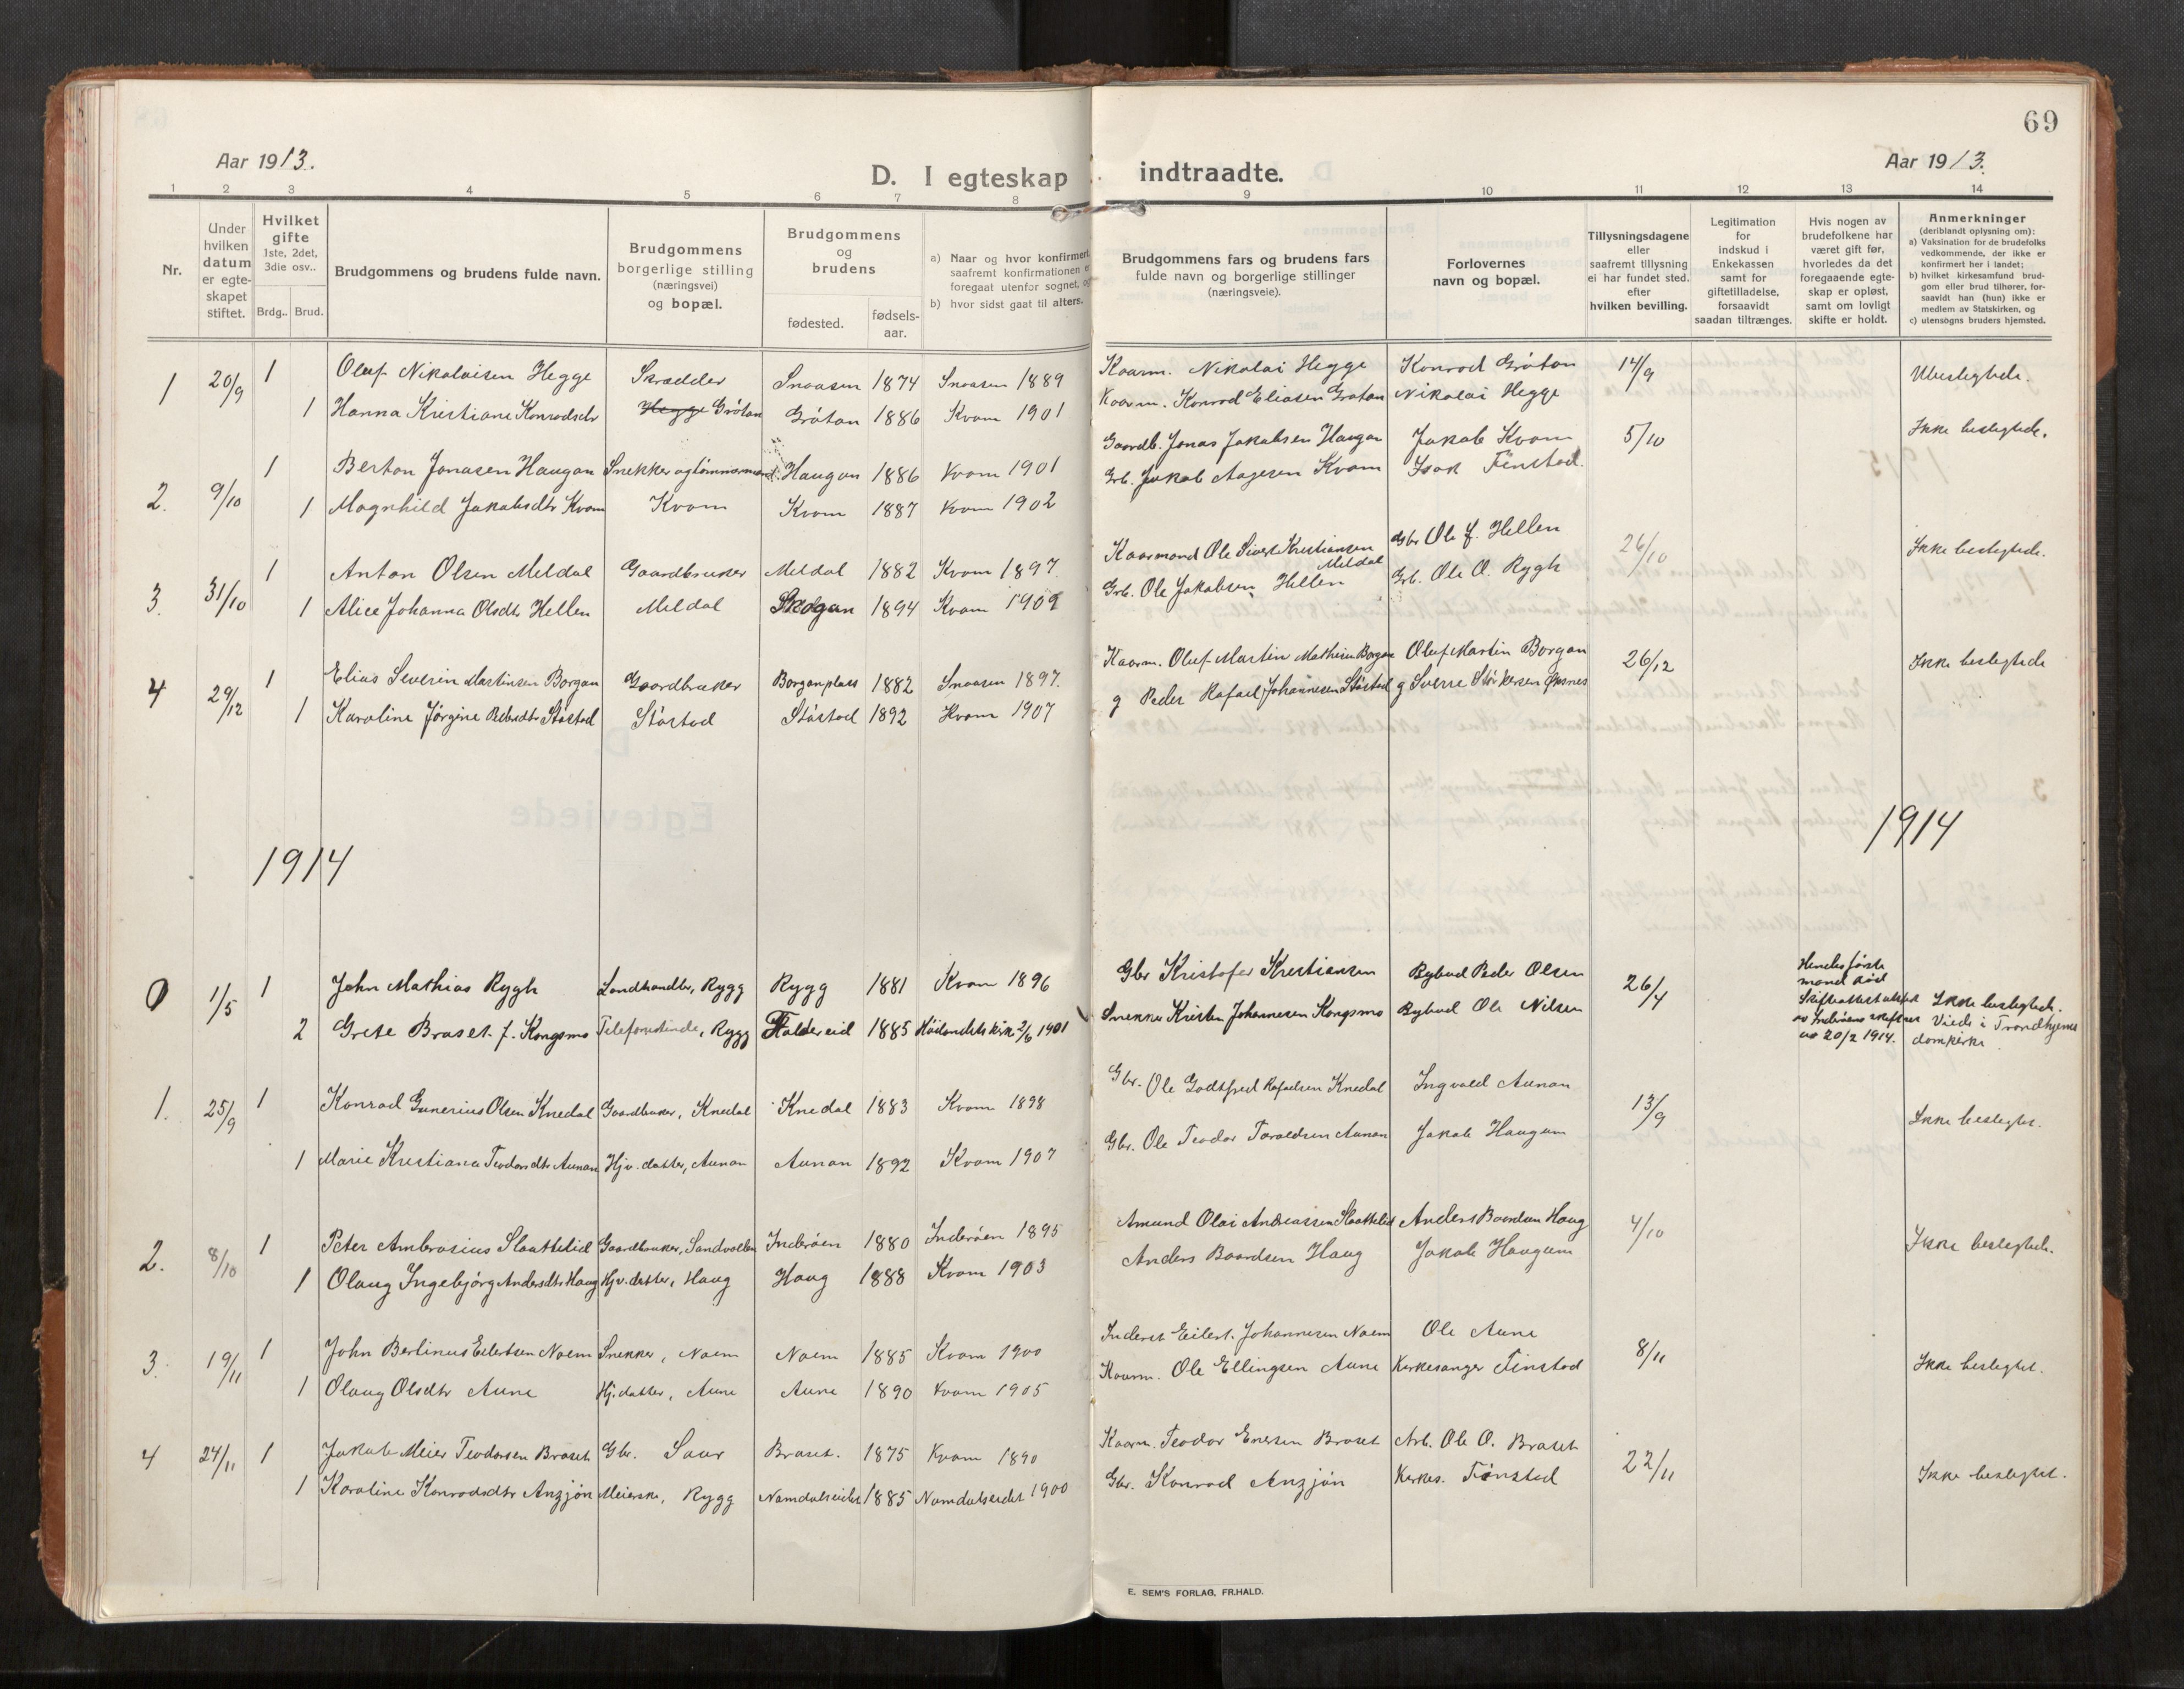 69
Aar 1913.
Aar 1913.
D. I egteskap indtraadte.
1 2 3 4 5 6 7 8 9 10 11 12 13 14
Nr.
Under hvilken datum er egte-skapet stiftet.
Hvilket gifte 1ste, 2det, 3die osv..
Brdg.. Brud.
Brudgommens og brudens fulde navn.
Brudgommens borgerlige stilling (næringsvei) og bopæl.
Brudgommens og brudens
fødested. fødsels-aar.
a) Naar og hvor konfirmert saafremt konfirmationen er foregaat utenfor sognet, og
b) hvor sidst gaat til alters.
Brudgommens fars og brudens fars fulde navn og borgerlige stillinger (næringsveie).
Forlovernes navn og bopæl.
Tillysningsdagene eller saafremt tillysning ei har fundet sted. efter hvilken bevilling.
Legitimation for indskud i Enkekassen samt for giftetilladelse, forsaavidt saadan tiltrænges.
Hvis nogen av brudefolkene har været gift før, hvorledes da det foregaaende egte-skap er opløst, samt om lovligt skifte er holdt.
Anmerkninger
(deriblandt oplysning om):
a) Vaksination for de brudefolks vedkommende, der ikke er konfirmert her i landet;
b) hvilket kirkesamfund brud-gom eller brud tilhører, for-saavidt han (hun) ikke er medlem av Statskirken, og
c) utensogns bruders hjemsted.
1 20/9 1 Oluf Nikolaisen Hegge Skrædder Snaasen 1874 Snaasen 1889 Kaarm. Nikolai Hegge Konrod Grótan 14/9 Ubeslegtede.
1 Hanna Kristiane Konrodsdtr Hegge Grótan Grótan 1886 Kvam 1901 Kaarm. Konrod Eliasen Grotan Nikolai Hegge
2. 9/10 1 Berton Jonasen Haugan Snekker og tömmermand Haugan 1886 Kvam 1901 Gaardb. Jonas Jakobsen Haugan Jakob Kvam 5/10 Ikke beslegtede.
1 Magnhild Jakobsdtr Kvam Kvam Kvam 1887 Kvam 1902 Grb. Jakob Aagesen Kvam Isak Finstad.
3. 31/10 1 Anton Olsen Meldal Gaardbruker Meldal 1882 Kvam 1897. Kaarmand Ole Sivert Kristiansen Meldal Gbr Ole J. Hellen 26/10 Ikke beslegtede.
1 Alice Johanna Olsdtr Hellem Meldal Skógan 1894 Kvam 1909 Grb. Ole Jakobsen Hellem Grb. Ole O. Rygh
4 29/12 1 Elias Severin Martinsen Borgan Gaardbruker Borganplass 1882 Snaasen 1897. Kaarm. Oluf Martin Mathisen Borgan Oluf Martin Borgan 26/12 Ikke beslegtede
1 Karoline Jörgine Pedersdtr Stöstad Stöstad Stöstad 1892 Kvam 1907 g Peder Rafael Johannesen Stöstad g Sverre Störkersen Øksnes
1914
1914
0 1/5 1 John Mathias Rygh Landhandler, Rygg Rygg 1881 Kvam 1896 Gbr Kristofer Kristiansen Bybud Peder Olsen 26/4 Hendes förste mand död Skifteattest utstedt av Inderöens skifteret av 20/2 1914. Ikke beslegtede. Viede i Trondhjems domkirke
2 Grete Braset. f. Kongsmo Telefonistinde, Rygg Foldereid 1885 Höilandets kirk. 2/6 1901 Snekker Kristen Johannesen Kongsmo Bybud Ole Nilsen
1. 25/9 1 Konrad Gunerius Olsen Knedal Gaardbruker, Knedal Knedal 1883 Kvam 1898 Gbr. Ole Godtfred Rafaelsen Knedal Ingvald Aunan 13/9 Ikke beslegtet.
1 Marie Kristiana Teodorsdtr Aunan Hjv. datter, Aunan Aunan 1892 Kvam 1907 Gbr. Ole Teodor Toraldsen Aunan Jakob Haugum
2. 8/10 1 Peter Ambrosius Slaattelid Gaardbruker, Sandvollan Inderöen 1880 Inderöen 1895 Amund Olai Andreassen Slaattelid Anders Baardsen Haug 4/10 Ikke beslegtede.
1 Olaug Ingebjörg Andersdtr Haug Hjv. datter, Haug Haug 1888 Kvam 1903 Anders Baardsen Haug Jakob Haugum
3. 19/11 1 John Berlinus Eilertsen Naem Snekker, Naem Naem 1885 Kvam 1900 Inderst Eilert Johannesen Naem Ole Aune 8/11 Ikke beslegtet.
1 Olaug Olsdtr Aune Hj. datter, Aune Aune 1890 Kvam 1905 Kaarm. Ole Ellingsen Aune Kirkesanger Finstad
4 24/11 1 Jakob Meier Teodorsen Braset Gbr. Saur Braset. 1875 Kvam 1890 Kaarm. Teodor Enersen Braset Arb. Ole O. Braset 22/11 Ikke beslegtet.
1 Karoline Konrodsdtr Anzjön Meierske, Rygg Namdalseidet 1885 Namdalseidet 1900 Gbr. Konrad Anzjön Kirkes. Finstad
E. SEM'S FORLAG, FR.HALD.